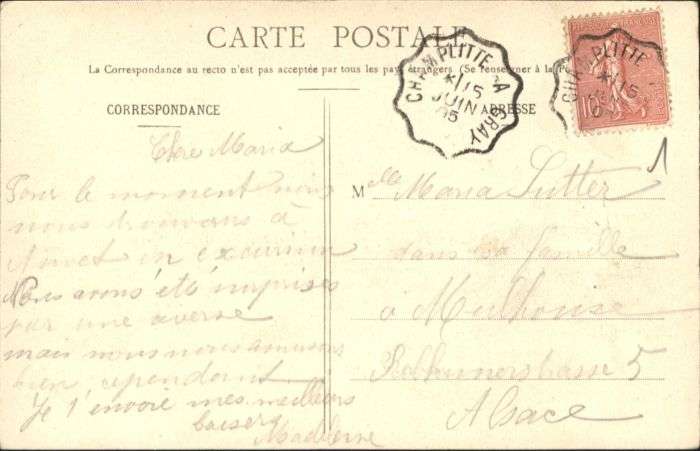 CARTE POSTALE
La Correspondance au recto n'est pas acceptée par tous les pays étrangers (Se renseigner à la
CORRESPONDANCE
ADRESSE
CHAMPLITTE A GRAY
15
JUIN
05
CHAMPLITTE
15
10
1
Chère Maria
Pour le moment nous
nous trouvons à
en excursion
Nous avons été surprises
par une averse
mais nous nous amusons
bien cependant
Je t'envoie mes meilleurs
baisers
Madeleine
Mlle Maria Sutter
dans sa famille
à Mulhouse
5
Alsace